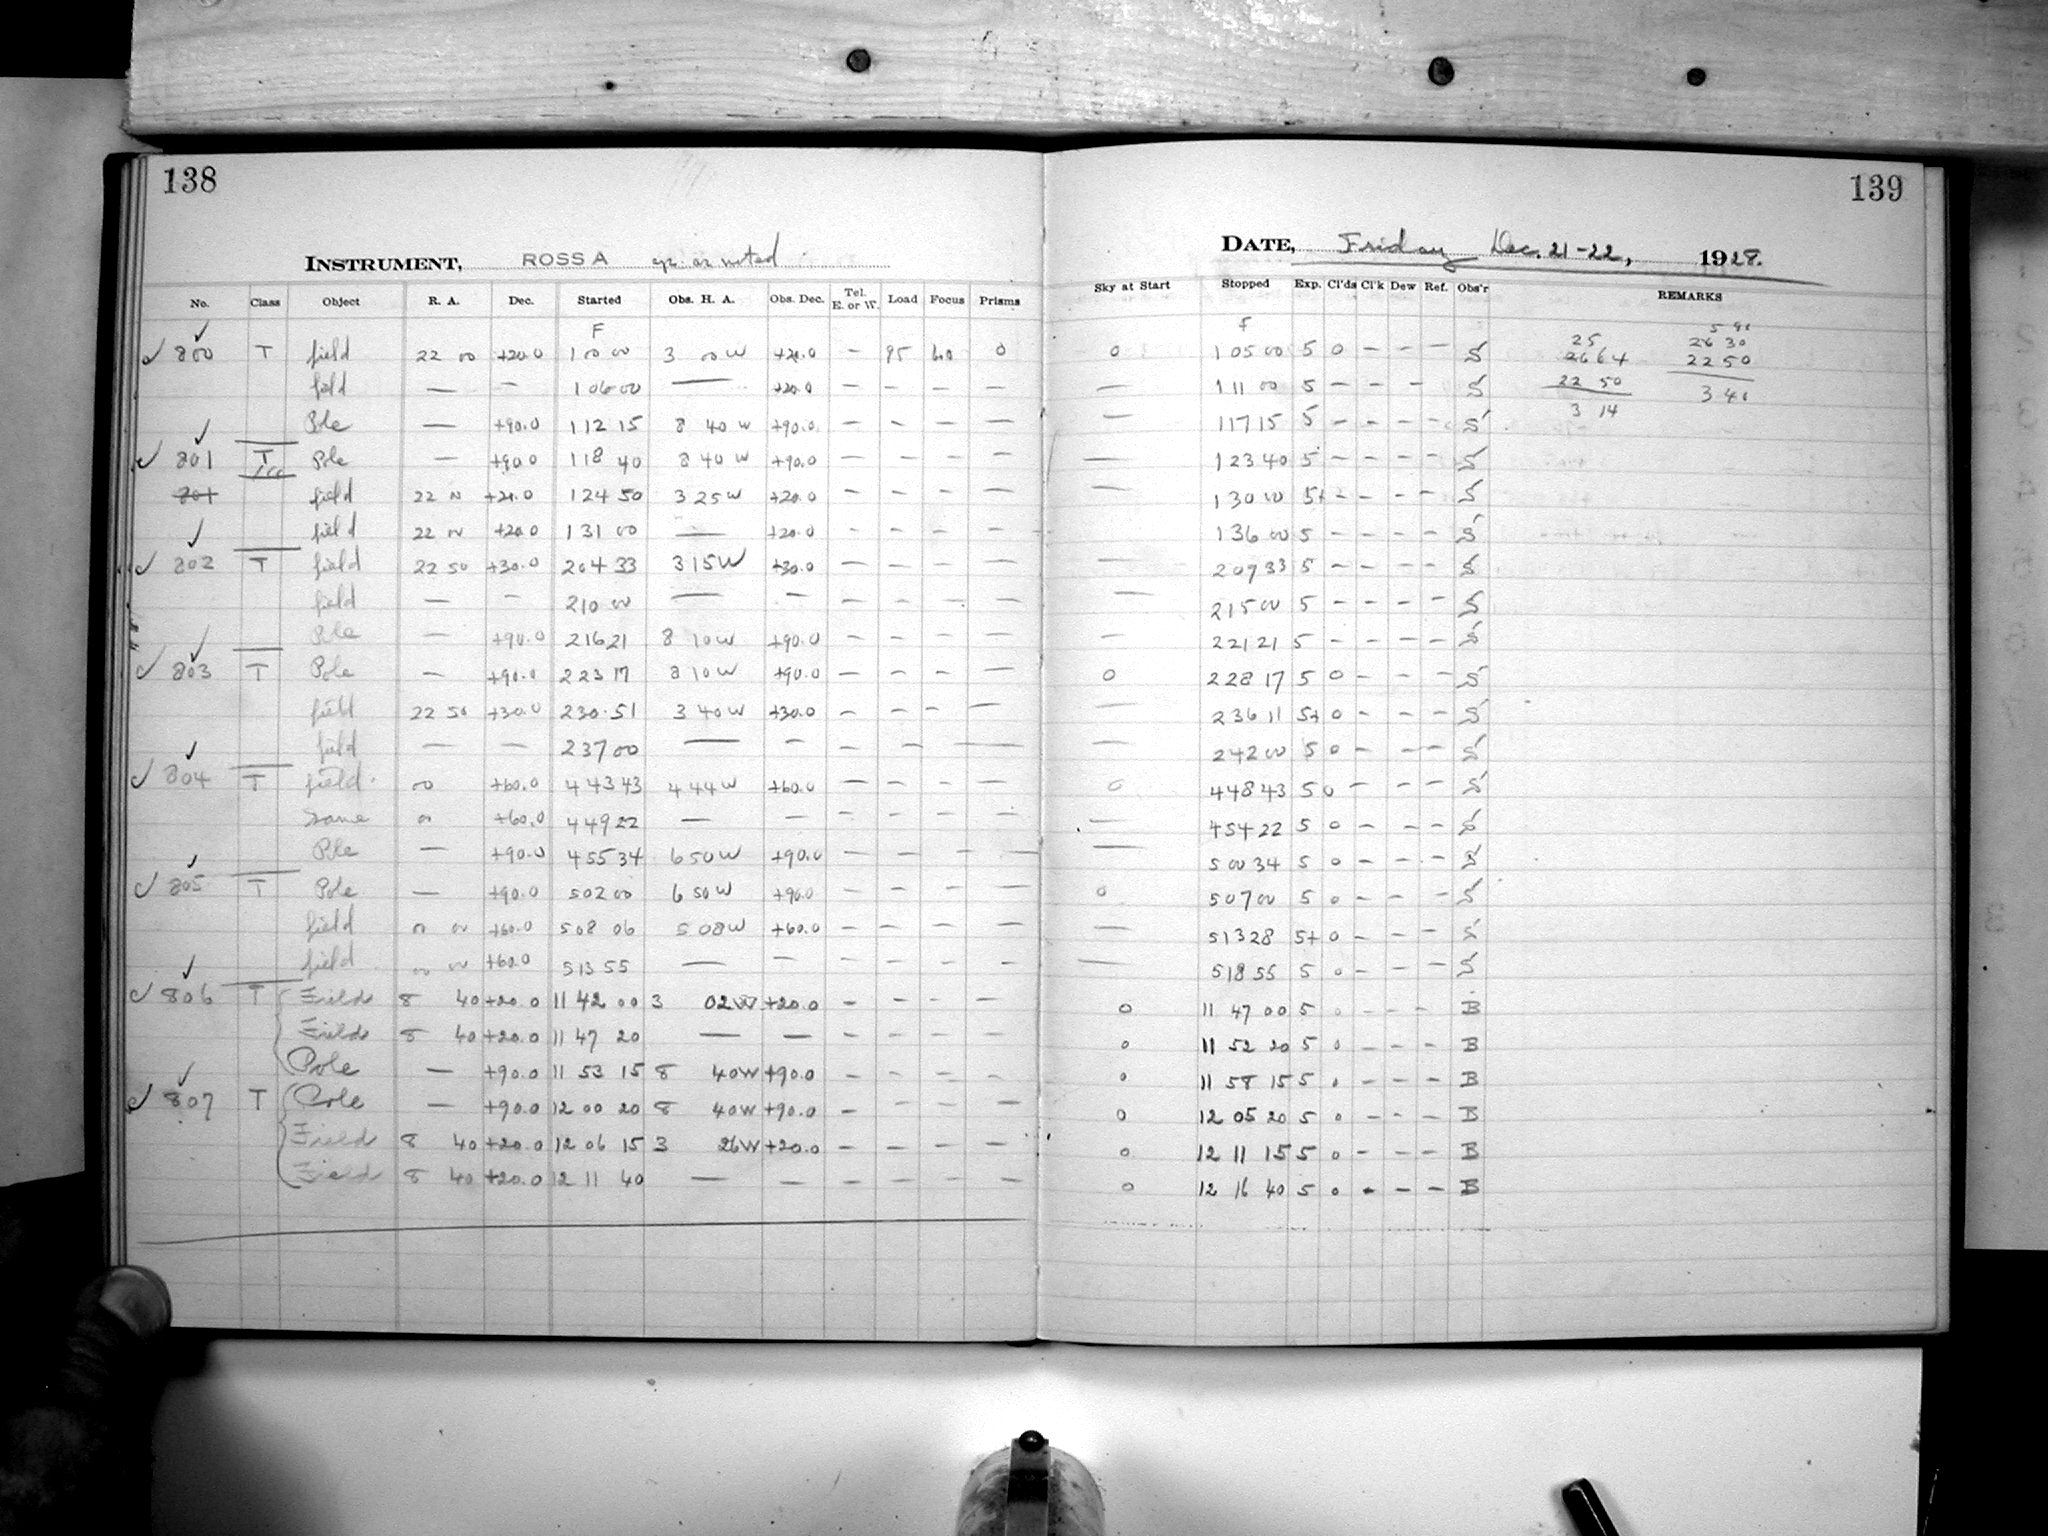 138
INSTRUMENT, ROSS A
No. Class Object R. A. Dec. Started Obs. H. A. Obs. Dec. Tel. E. or W. Load Focus Prisms
F
800 T field 22 00 +20.0 1 00 00 3 00 W +20.0 — 95 60 0
field — — 1 06 00 — +20.0 — — — —
Pole — +90.0 1 12 15 8 40 W +90.0 — — — —
801 T Pole — +90.0 1 18 40 8 40 W +90.0 — — — —
801 field 22 00 +20.0 1 24 50 3 25 W +20.0 — — — —
field 22 00 +20.0 1 31 00 — +20.0 — — — —
802 T field 22 50 +30.0 2 04 33 3 15 W +30.0 — — — —
field — — 2 10 00 — — — — — —
Pole — +90.0 2 16 21 8 10 W +90.0 — — — —
803 T Pole — +90.0 2 23 17 8 10 W +90.0 — — — —
field 22 50 +30.0 2 30 51 3 40 W +30.0 — — — —
field — — 2 37 00 — — — — —
804 T field 00 +60.0 4 43 43 4 44 W +60.0 — — — —
Same 00 +60.0 4 49 22 — — — — — —
Pole — +90.0 4 55 34 6 50 W +90.0 — — — —
805 T Pole — +90.0 5 02 00 6 50 W +90.0 — — — —
field 00 00 +60.0 5 08 06 5 08 W +60.0 — — — —
field 00 00 +60.0 5 13 55 — — — — — —
806 T Field 8 40 +20.0 11 42 00 3 02 W +20.0 — — — —
Field 8 40 +20.0 11 47 20 — — — — — —
Pole — +90.0 11 53 15 8 40 W +90.0 — — — —
807 T Pole — +90.0 12 00 20 8 40 W +90.0 — — — —
Field 8 40 +20.0 12 06 15 3 26 W +20.0 — — — —
Field 8 40 +20.0 12 11 40 — — — — — —
139
DATE, Friday Dec. 21-22, 1928.
Sky at Start Stopped Exp. Cl'ds Cl'k Dew Ref. Obs'r REMARKS
F
0 1 05 00 5 0 — — — S 25 26 30
— 1 11 00 5 — — — S 26 64 22 50
— 1 17 15 5 — — — — S 22 50 3 40
— 1 23 40 5 — — — — S 3 14
— 1 30 00 5+ — — — — S
1 36 00 5 — — — — S
— 2 09 33 5 — — — — S
— 2 15 00 5 — — — — S
— 2 21 21 5 — — — — S
0 2 28 17 5 0 — — — S
— 2 36 11 5+ 0 — — — S
— 2 42 00 5 0 — — — S
0 4 48 43 5 0 — — — S
— 4 54 22 5 0 — — — S
— 5 00 34 5 0 — — — S
0 5 07 00 5 0 — — — S
— 5 13 28 5+ 0 — — — S
— 5 18 55 5 0 — — — S
0 11 47 00 5 0 — — — B
0 11 52 20 5 0 — — — B
0 11 58 15 5 0 — — — B
0 12 05 20 5 0 — — — B
0 12 11 15 5 0 — — — B
0 12 16 40 5 0 — — — B